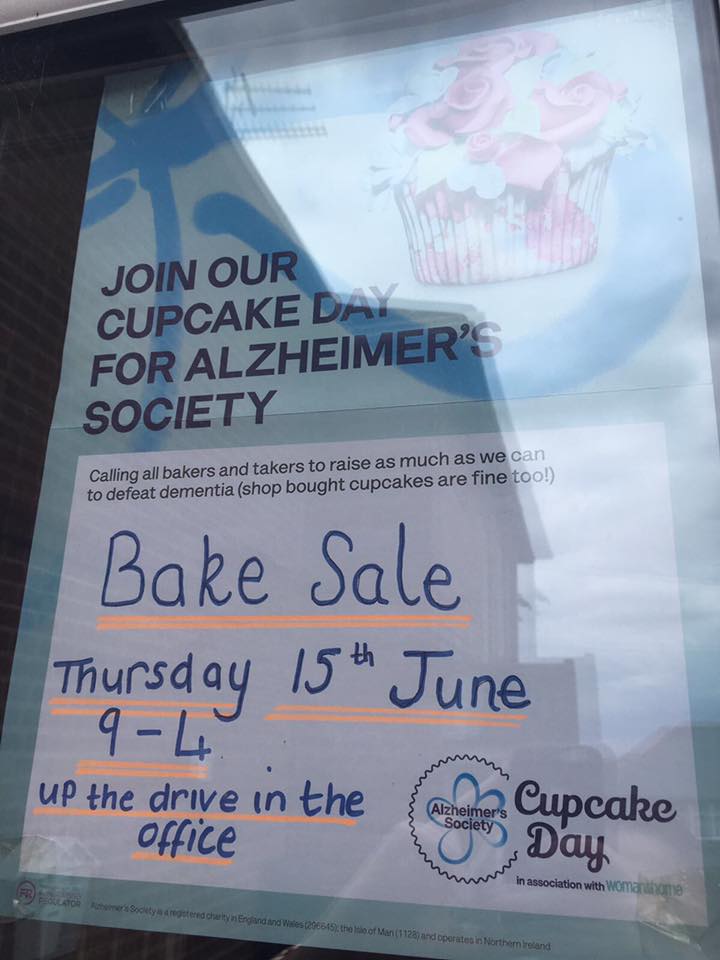 JOIN OUR
CUPCAKE DAY
FOR ALZHEIMER'S
SOCIETY
Calling all bakers and takers to raise as much as we can
to defeat dementia (shop bought cupcakes are fine too!)
Bake Sale
Thursday 15th June
9-4
up the drive in the
office
Alzheimer's
Society
Cupcake
Day
in association with woman&home
FR
REGULATOR
Alzheimer's Society is a registered charity in England and Wales (296645); the Isle of Man (1128) and operates in Northern Ireland